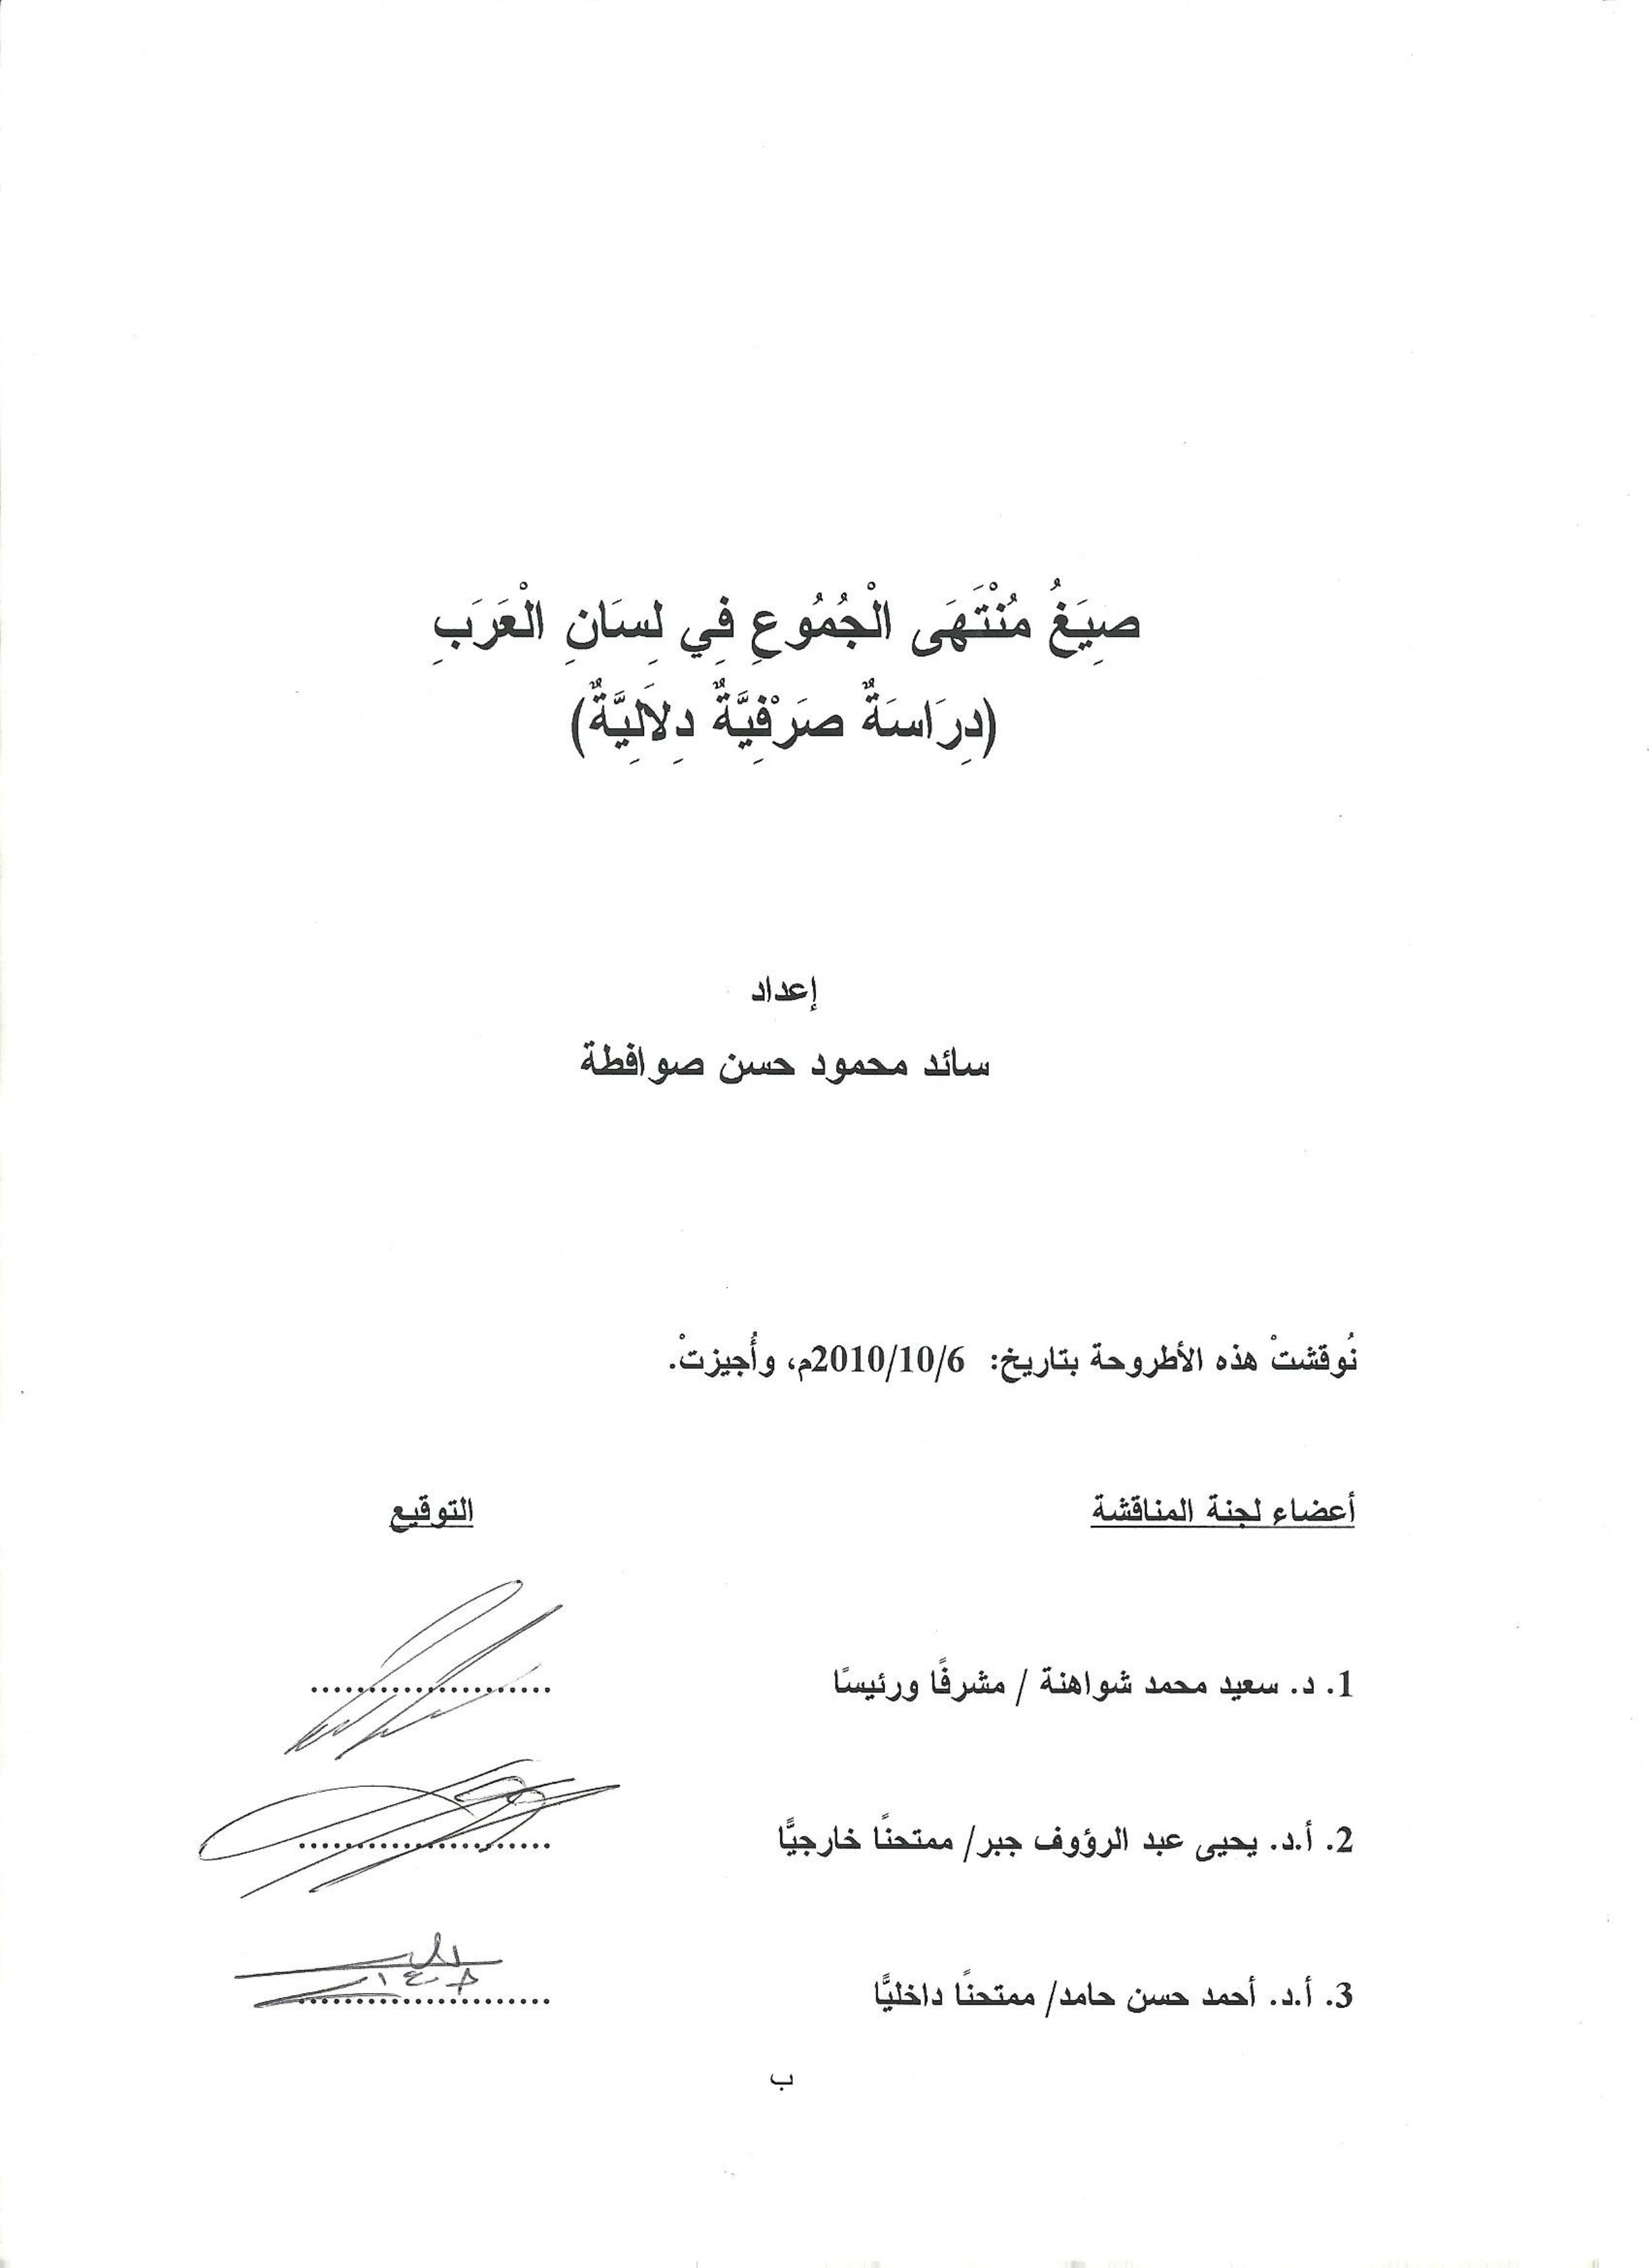 صِيَغُ مُنْتَهَى الْجُمُوعِ فِي لِسَانِ الْعَرَبِ
(دِرَاسَةٌ صَرْفِيَّةٌ دِلَالِيَّةٌ)
إعداد
سائد محمود حسن صوافطة
نُوقشتْ هذه الأطروحة بتاريخ: 2010/10/6م، وأُجيزتْ.
أعضاء لجنة المناقشة التوقيع
1. د. سعيد محمد شواهنة / مشرفًا ورئيسًا ......................
2. أ.د. يحيى عبد الرؤوف جبر/ ممتحنًا خارجيًّا ......................
3. أ.د. أحمد حسن حامد/ ممتحنًا داخليًّا ......................
ب